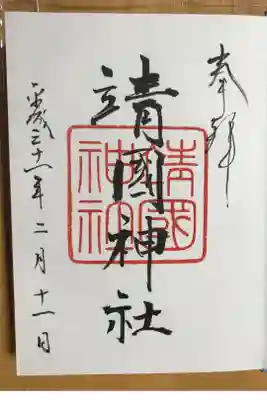 奉拝
靖國神社
靖國神社
平成三十一年二月十一日